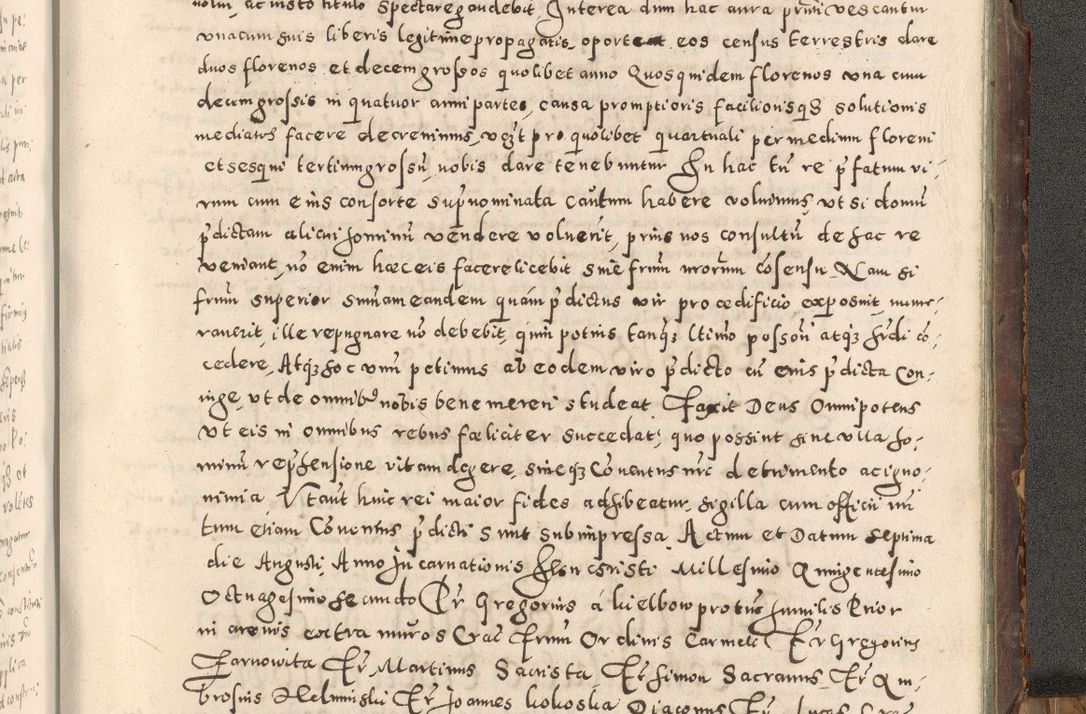 nolui, ac iusto titulo spectare gaudebit Interea dum hac aura priui vescantur
vna cum suis liberis legitime propagatis oportet eos census terrestris dare
duos florenos et decem grossos quolibet anno Quosquidem florenos vna cum
decem grossis in quatuor anni partes, causa promptioris faciliorisqȝ solutionis
mediatus facere decreuimus, vt pro quolibet quartuali per medium floreni
et sesqui tertium grossũ, nobis dare tenebuntur In hac tñ re p̃fatum vi-
rum cum eius consorte supnominata cautum habere volumus, vt si domũ
p̃dictam alicui hominũ vendere voluerit, prius nos consultũ de hac re
veniant, nõ enim hæc eis facere licebit sine frũm nrorum cõsensu. Nam si
frũm superior summam eandem quam p̃dictus vir pro ædificio, exposuit, nume-
rauerit, ille repugnare nõ debebit, quin potius tanqȝ ltimo possori atqȝ hrdi cõ-
cedere, Atqȝ hoc vnũ petimus ab eodem viro p̃dicto cũ eius p̃dicta Con-
iuge, vt de omnibȝ nobis bene mereri studeat. Faxit Deus Omnipotens
vt eis in omnibus rebus fœliciter succedat, quo possint sine vlla ho-
minũ rephensione vitam degere, sineqȝ Conuentus nrj detrimento ac igno-
minia. Vt aũt huic rei maior fides adhibeatur sigilla cum officii nri
tum etiam Conuentus p̃dicti sunt subimpressa. Actum et Datum septima
die Augusti, Anno Incarnationis Jesu christi Millesimo Quingentesimo
Octuagesimo secundo Fr̃ Gregorius á kielbow protunc humilis Prior
in arenis extra muros Crac̃ frũm Ordinis Carmeli Fr̃ Gregorius
Tarnovita Fr̃ Martinus Sacrista Fr̃ Simon Sacranus Fr̃ Am-
brosius Helminski Fr̃ Joannes kokoska Diaconus Fr̃ Lucas Crac̃